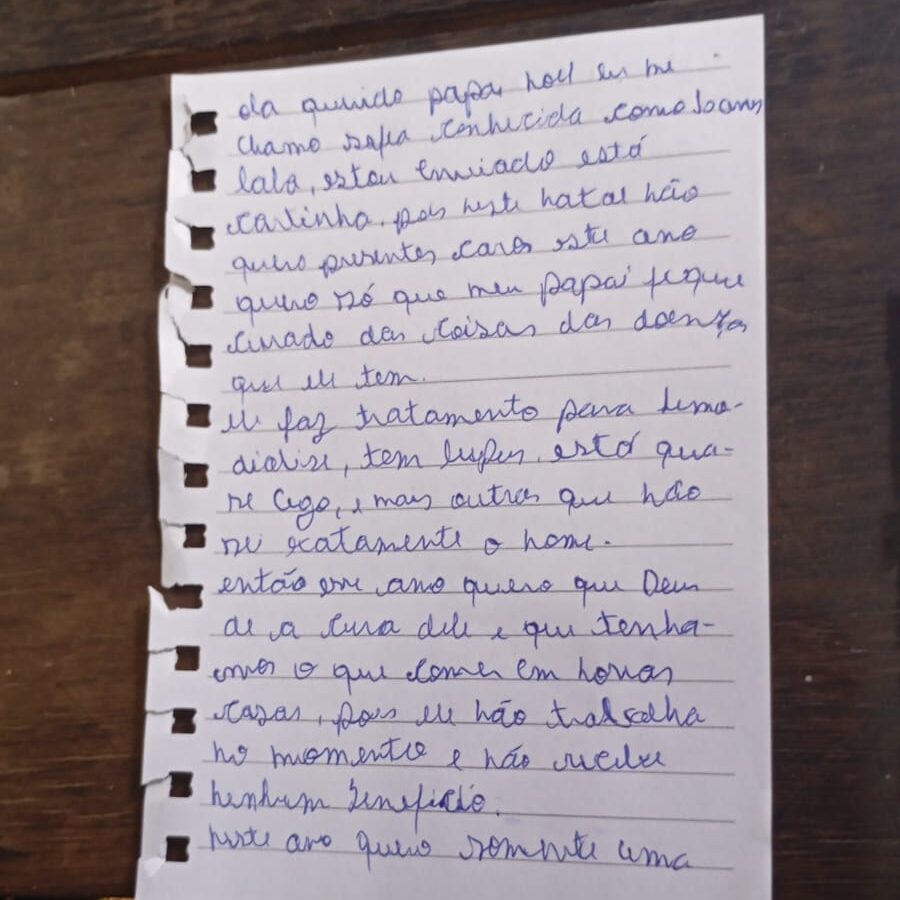 ola querido papai noel eu me
chamo sofia conhecida como Joanny
lala, estou enviado está
cartinha. pois neste natal não
quero presentes caros este ano
quero só que meu papai fique
curado das coisas das doenças
que ele tem.
ele faz tratamento para hemo-
dialise, tem lupus, está qua-
se cego, e mais outras que não
sei exatamente o nome.
então esse ano quero que Deus
de a cura dele e que tenha-
mos o que comer em nossas
casas, pois ele não trabalha
no momento e não recebe
nenhum benefício.
neste ano quero somente uma